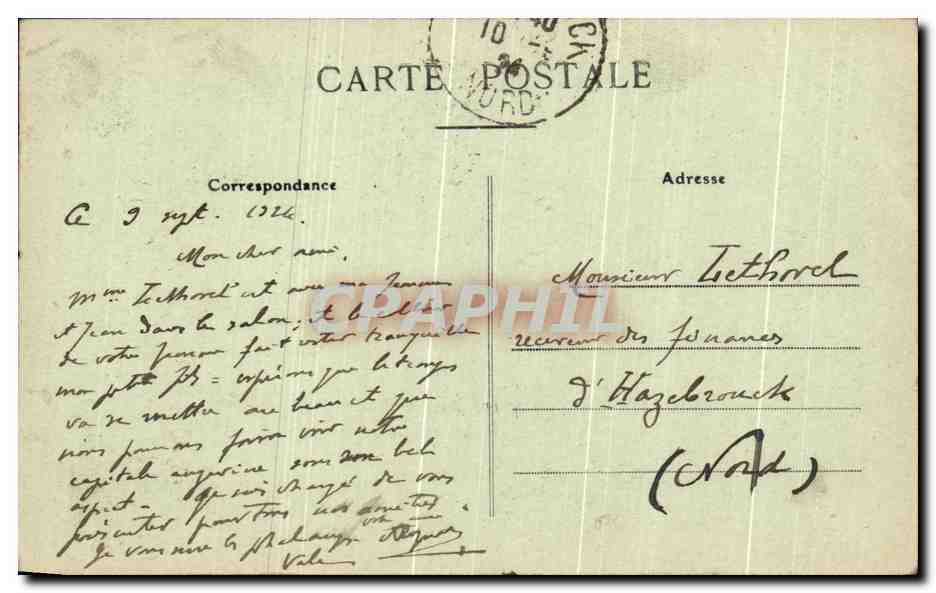 CARTE POSTALE
10
NORD
Correspondance
Adresse
Ce 9 sept. 1924.
Mon cher ami,
Mme Lethorel est avec ma femme
et Jean dans le salon, et le
de votre femme fait rester tranquille
mon petit = espérons que le temps
va se mettre au beau et que
nous pourrons faire voir notre
capitale angevine sous son bel
aspect - Je suis chargé de vous
présenter pour tous nos amitiés.
Je vous serre les phalanges
Vale
Monsieur Lethorel
receveur des douanes
d'Hazebrouck
(Nord)
CPAPHIL